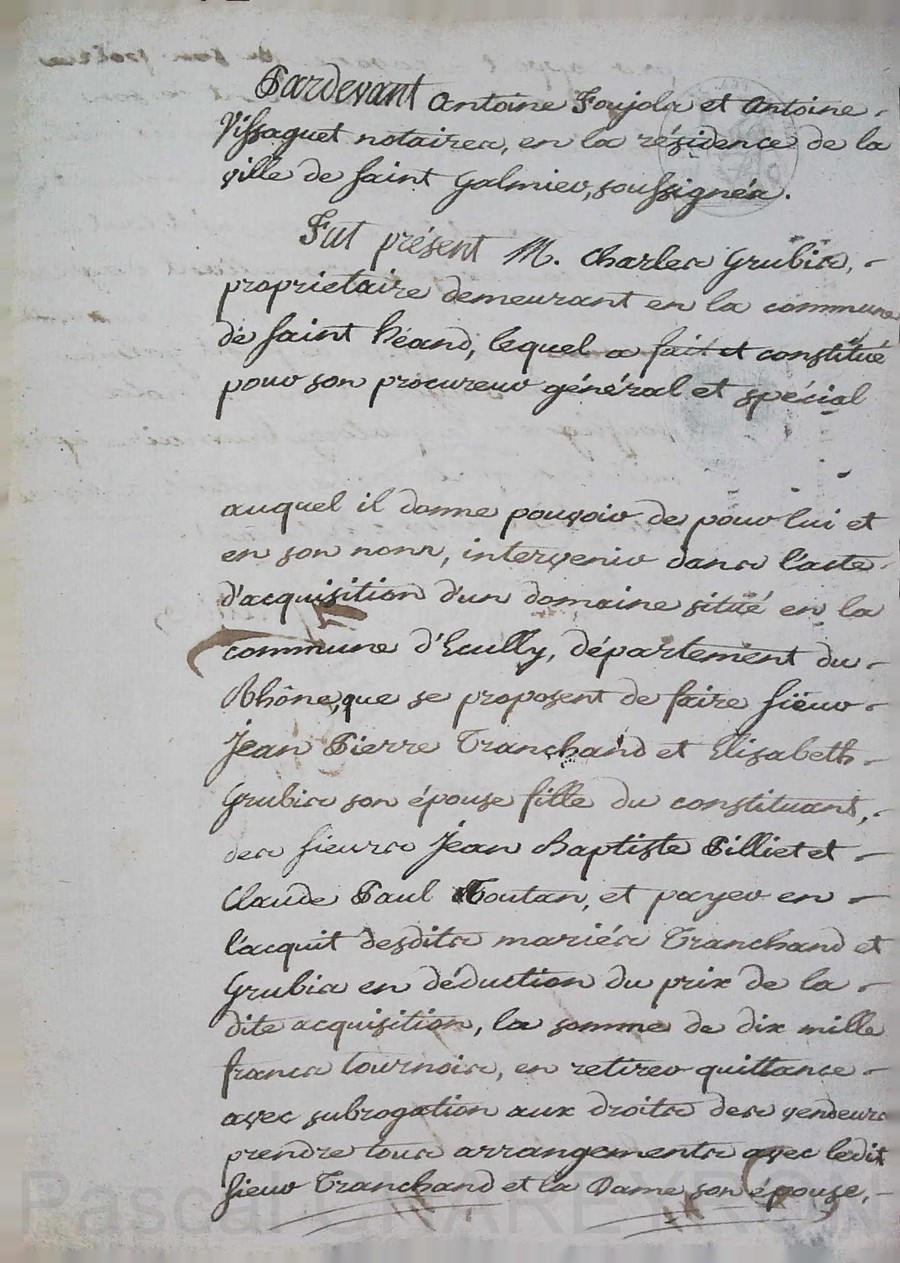 Pardevant Antoine Foujols et Antoine
Vissaguet notaires, en la résidence de la
ville de saint Galmier, soussignés.
Fut présent M. Charles Grubis,
proprietaire demeurant en la commune
de saint héand, lequel a fait et constitué
pour son procureur général et spécial
auquel il donne pouvoir de pour lui et
en son nom, intervenir dans l'acte
d'acquisition d'un domaine situé en la
commune d'Ecully, département du
Rhône, que se proposent de faire sieur
Jean Pierre Tranchand et Elisabeth
Grubis son épouse fille du constituant,
des sieurs Jean Baptiste Pilliet et
Claude Paul Toutan, et payer en
l'acquit desdits mariés Tranchand et
Grubis en déduction du prix de la
dite acquisition, la somme de dix mille
francs tournois, en retirer quittance
avec subrogation aux droits des vendeurs
prendre tous arrangements avec ledit
sieur Tranchand et la Dame son épouse,
Pascal CHAREYRON